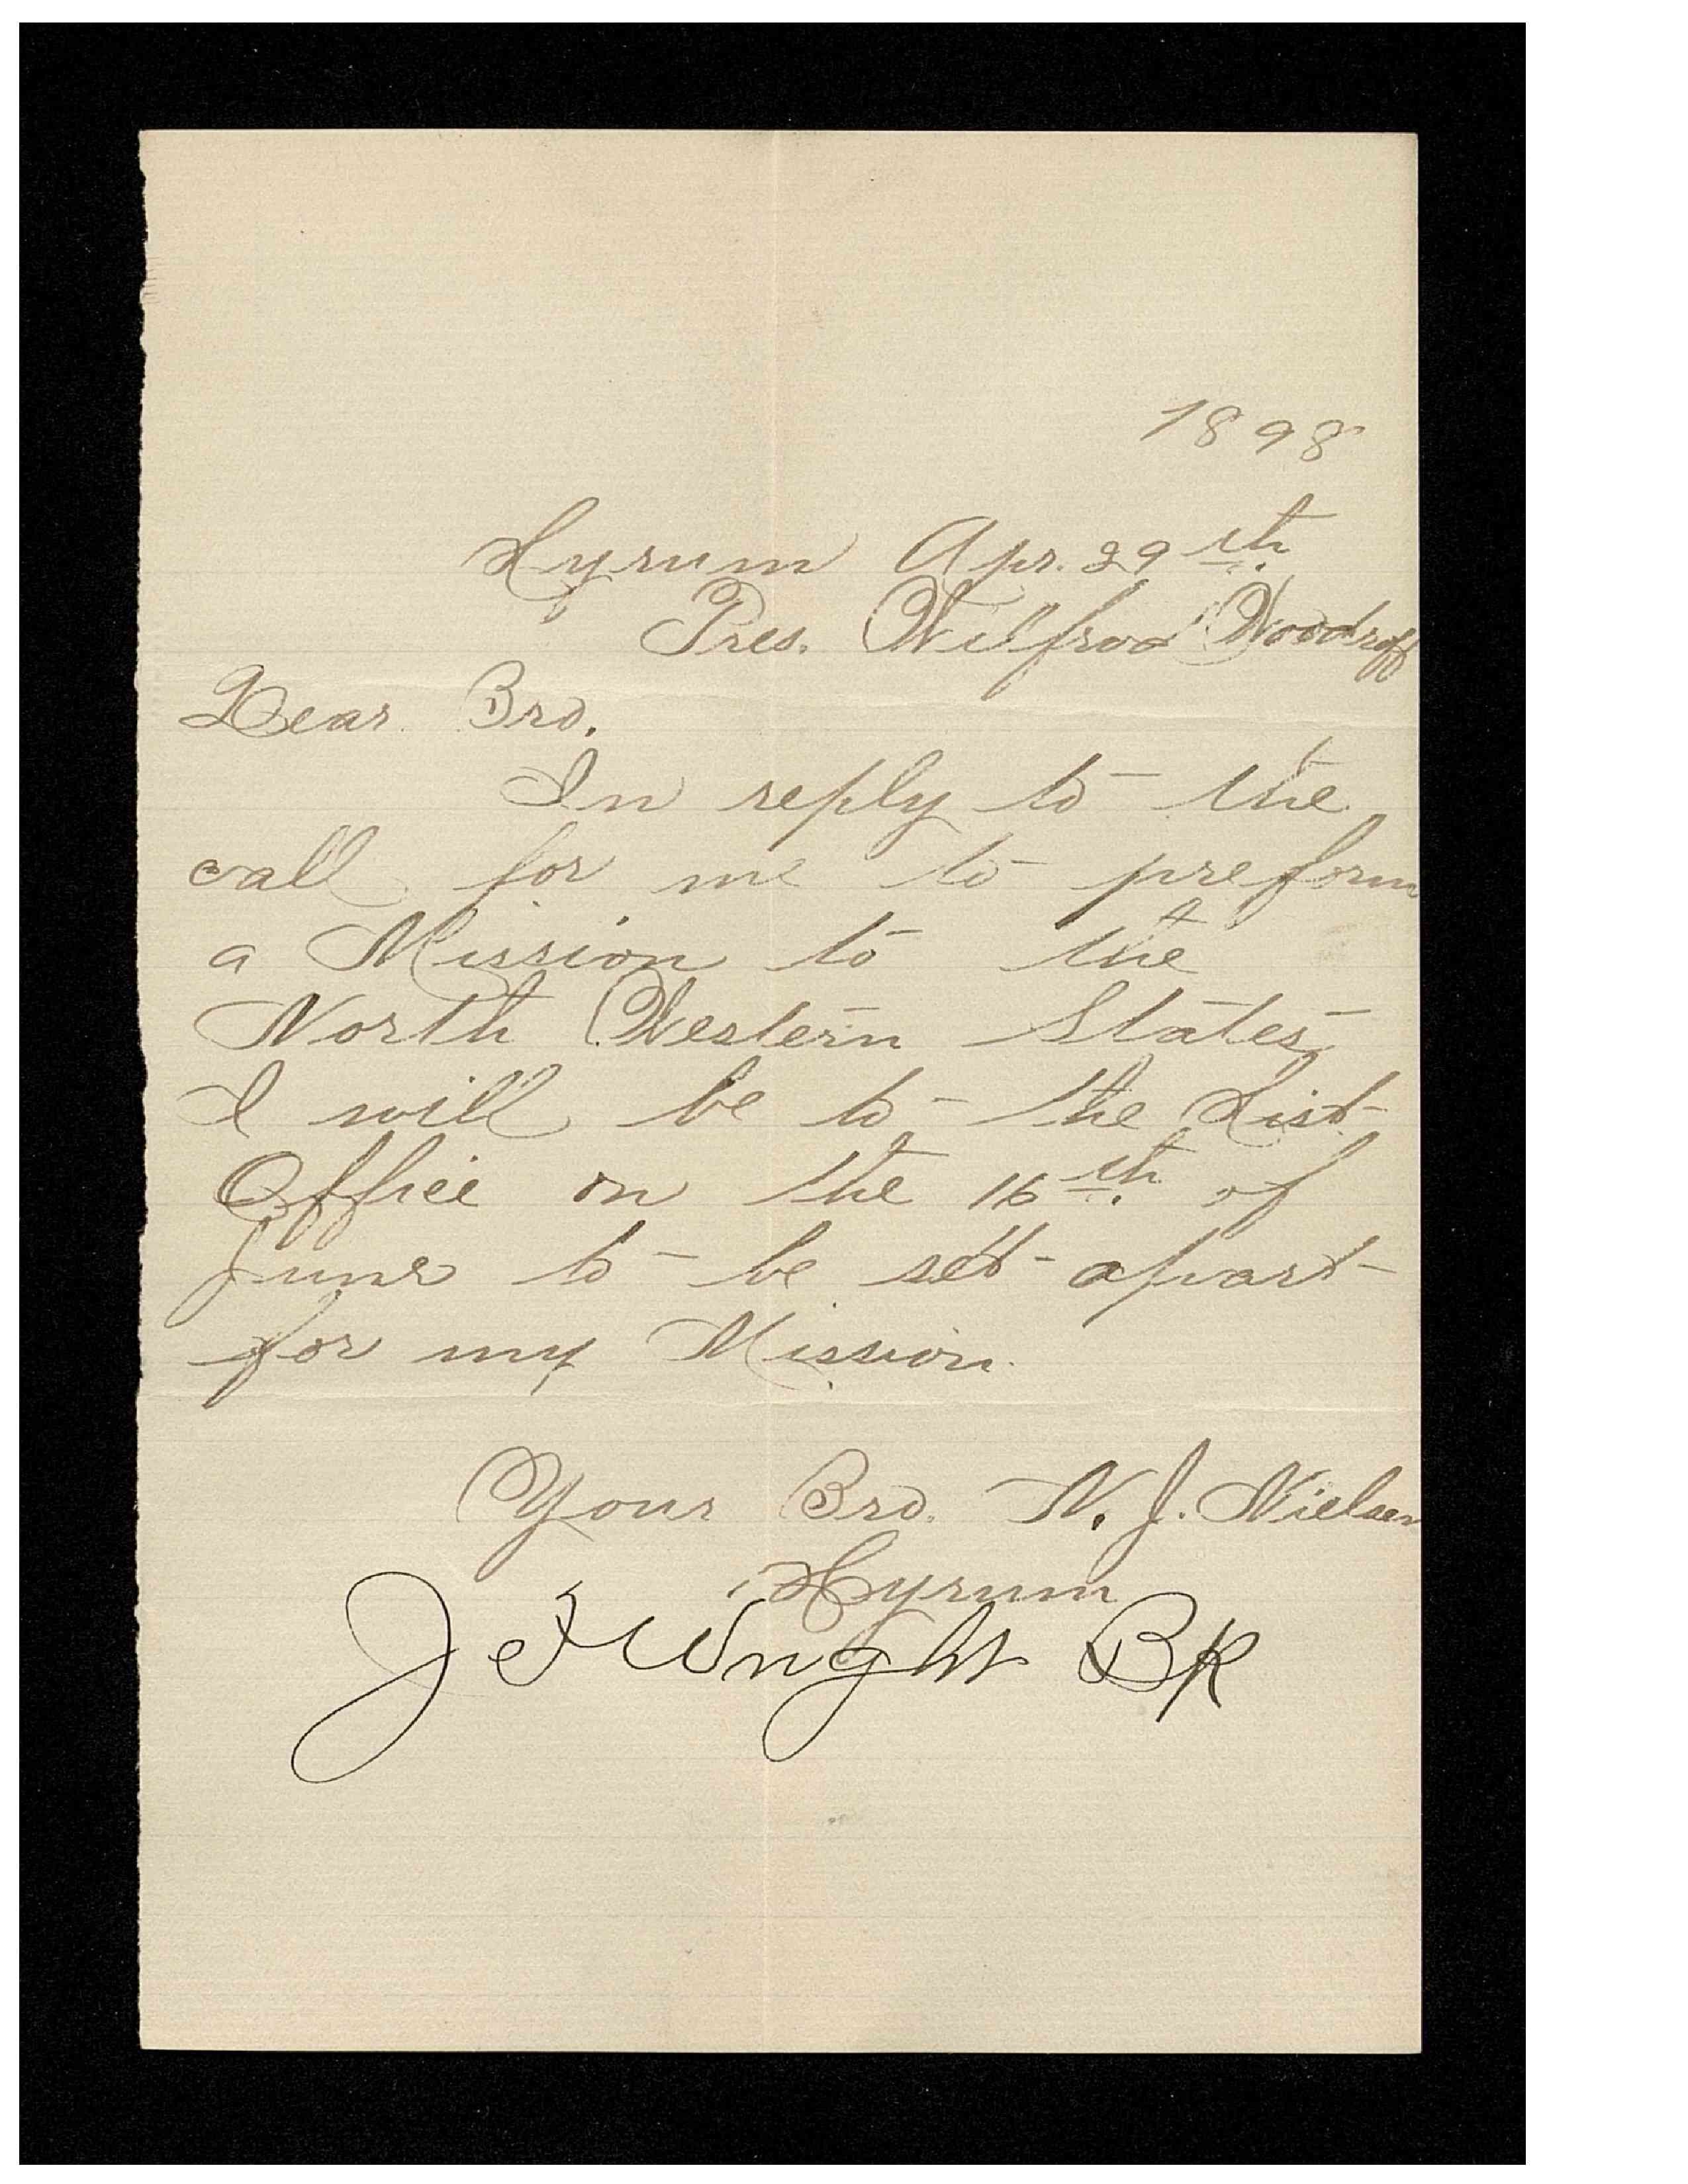 1898
Hyrum Apr. 29th.
Pres. Wilfrod Woodroff
Dear Bro.
In reply to the
call for me to preform
a Mission to the
North Western States
I will be to the Hist
Office on the 16th. of
June to be set apart
for my Mission.
Your Bro. N. J. Nielsen
Hyrum
J Wright BP